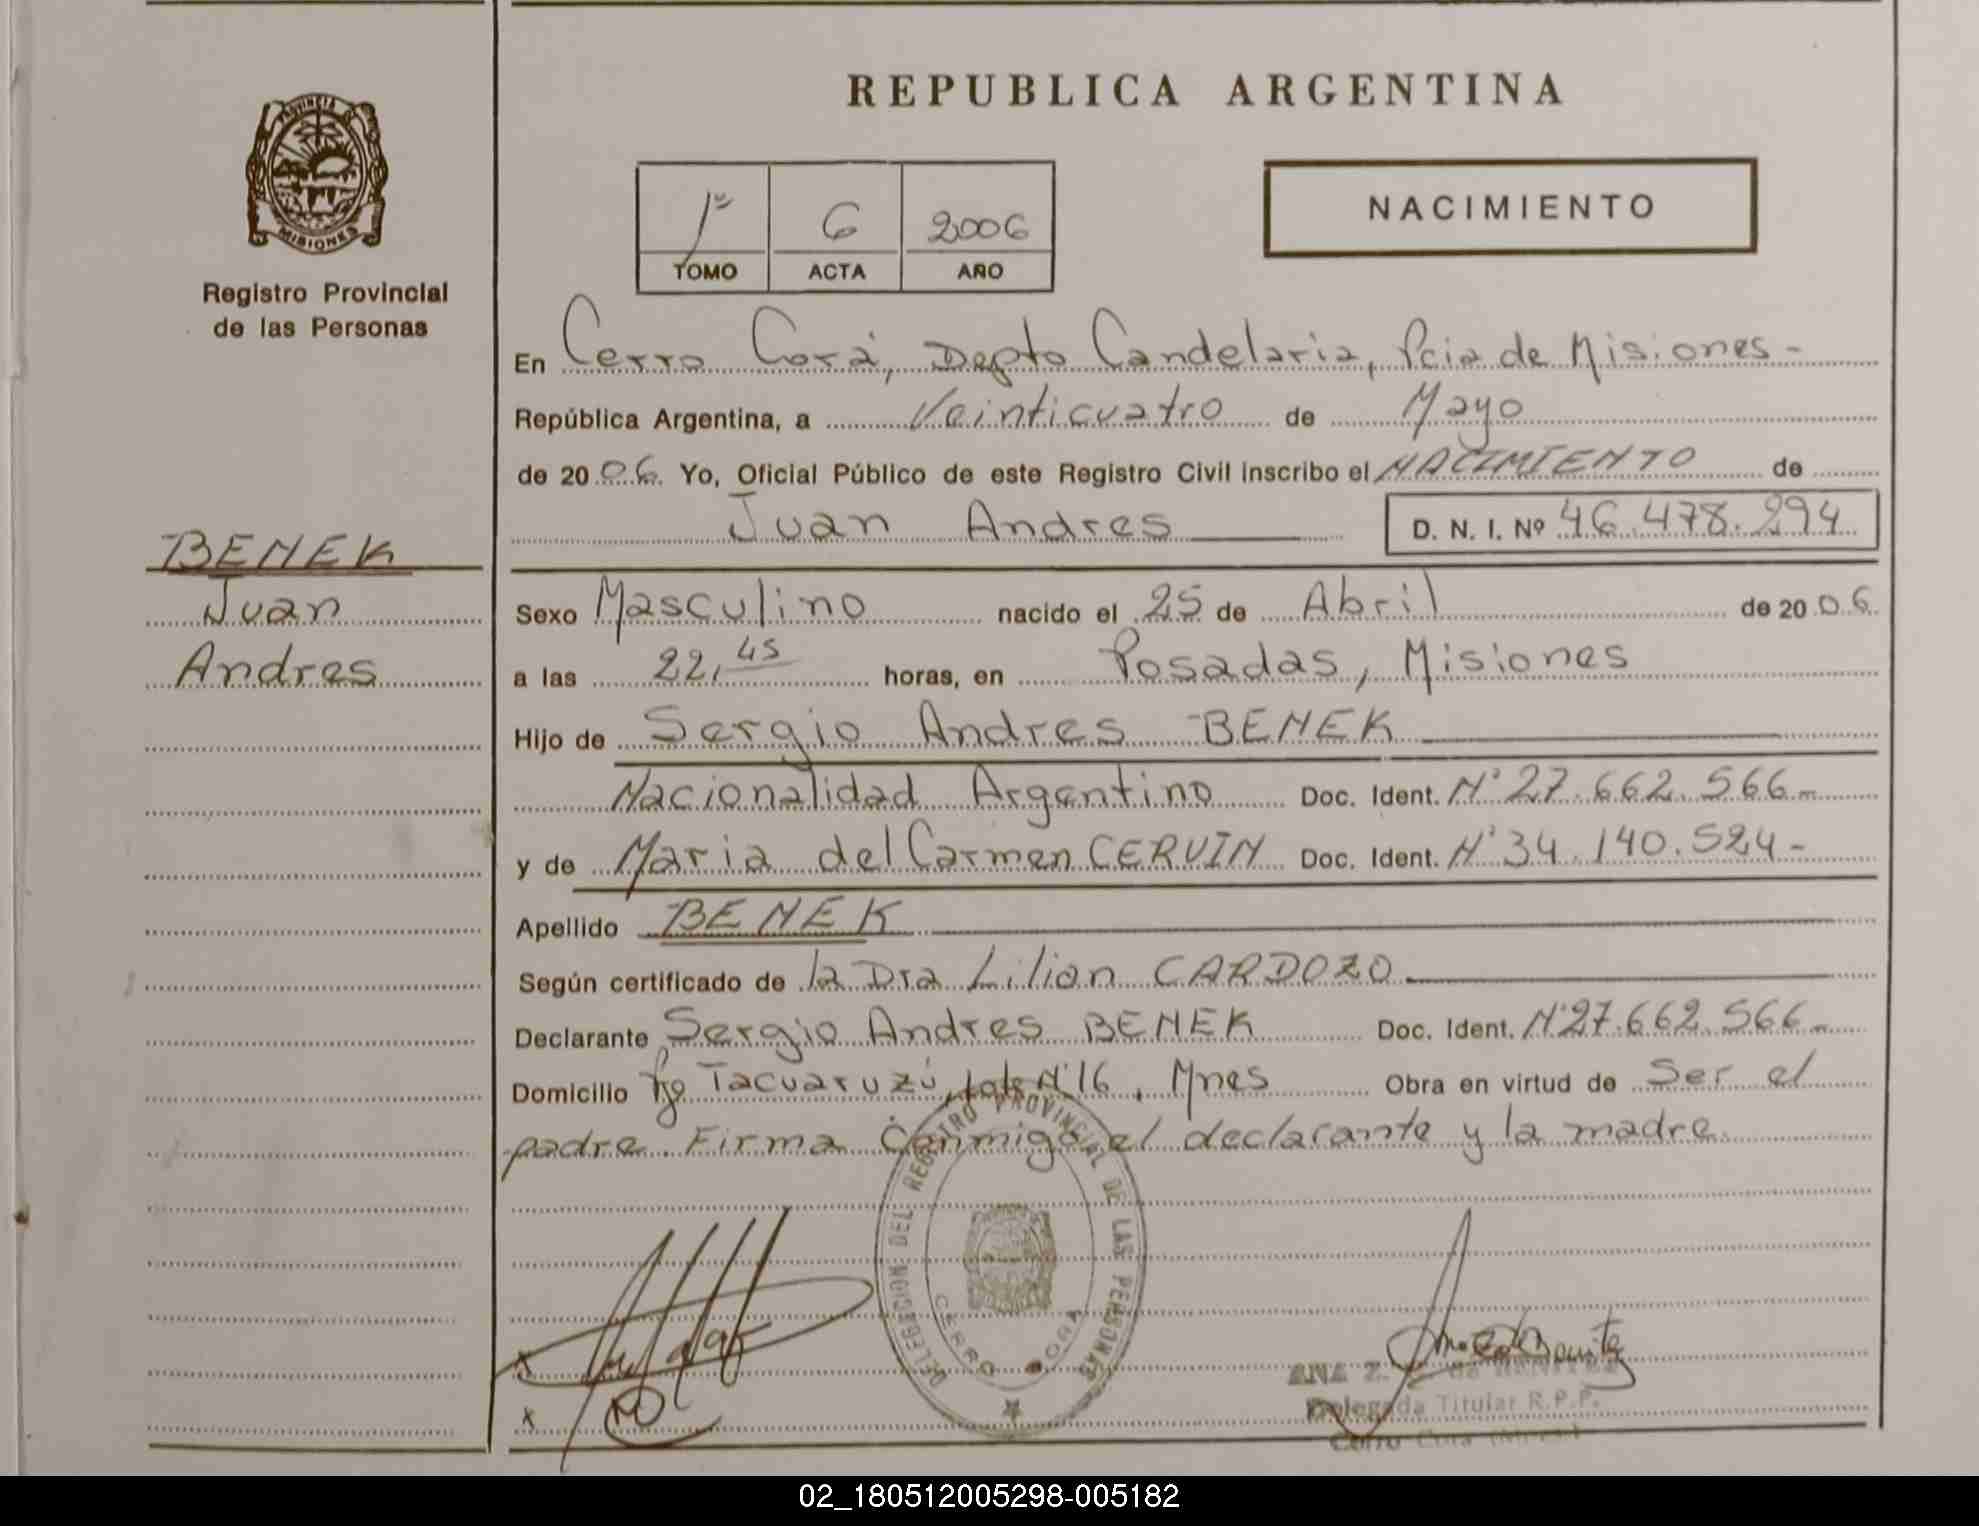 REPUBLICA ARGENTINA
PROVINCIA
MISIONES
Registro Provincial
de las Personas
1º 6 2006
TOMO ACTA AÑO
NACIMIENTO
En Cerro Corá, Depto Candelaria, Pcia de Misiones-
República Argentina, a Veinticuatro de Mayo
de 2006 Yo, Oficial Público de este Registro Civil inscribo el NACIMIENTO de
Juan Andres D. N. I. Nº 46.478.294
BENEK
Juan
Andres
Sexo Masculino nacido el 25 de Abril de 2006
a las 22,45 horas, en Posadas, Misiones
Hijo de Sergio Andres BENEK
Nacionalidad Argentino Doc. Ident. Nº 27.662.566-
y de Maria del Carmen CERVIN Doc. Ident. Nº 34.140.524-
Apellido BENEK
Según certificado de la Dra Lilian CARDOZO
Declarante Sergio Andres BENEK Doc. Ident. Nº 27.662.566-
Domicilio Pje Tacuaruzú, Lote Nº 16, Mnes Obra en virtud de Ser el
padre. Firma Conmigo el declarante y la madre
DELEGACION DEL REGISTRO PROVINCIAL DE LAS PERSONAS
CERRO CORA
x
x
ANA Z. de
Delegada Titular R.P.P.
Cerro Cora (Mnes.)
02_180512005298-005182